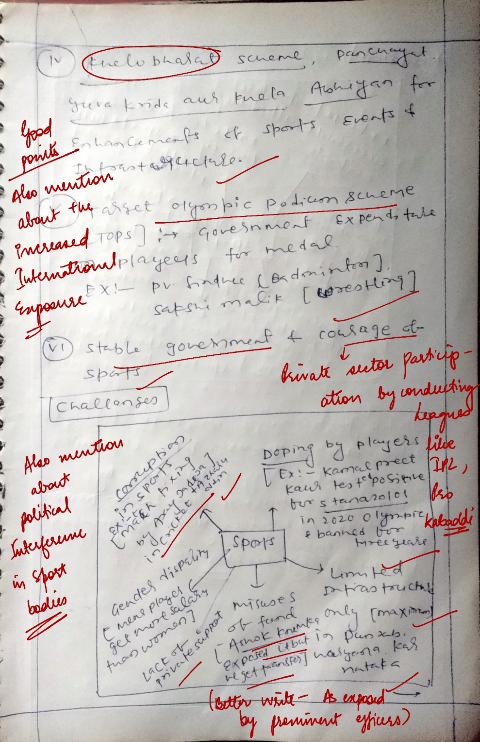 IV Khelo bharat scheme, panchayat
yuva krida aur khela Abhiyan for
Enhancements of sports Events &
Infrastructure.
Good
points
Also mention
about the
increased
International
Exposure
Target olympic podium scheme
[TOPS] :→ Government Expenditure
players for medal
EX:- PV Sindhu [Badminton]
Sakshi malik [wrestling]
VI Stable government & courage of
sports
Private sector particip-
ation by conducting
leagues
like
IPL,
Pro
kabaddi
Challenges
Also mention
about
political
Interference
in sport
bodies
corruption
in sports
Ex:
[match fixing
by
in cricket
Doping by players
[Ex:- Kamalpreet
Kaur test positive
for stanazolos
in 2020 olympic
& banned for
three years
Sports
Gender disparity
[mens player
get more salary
than women]
Lack of
private support
misuses
of fund
[Ashok
Exposed it but
he get transfer]
Limited
infrastructure
only [maximum
in Punjab,
Haryana, Kar
nataka
(Better write - As exposed
by prominent officers)